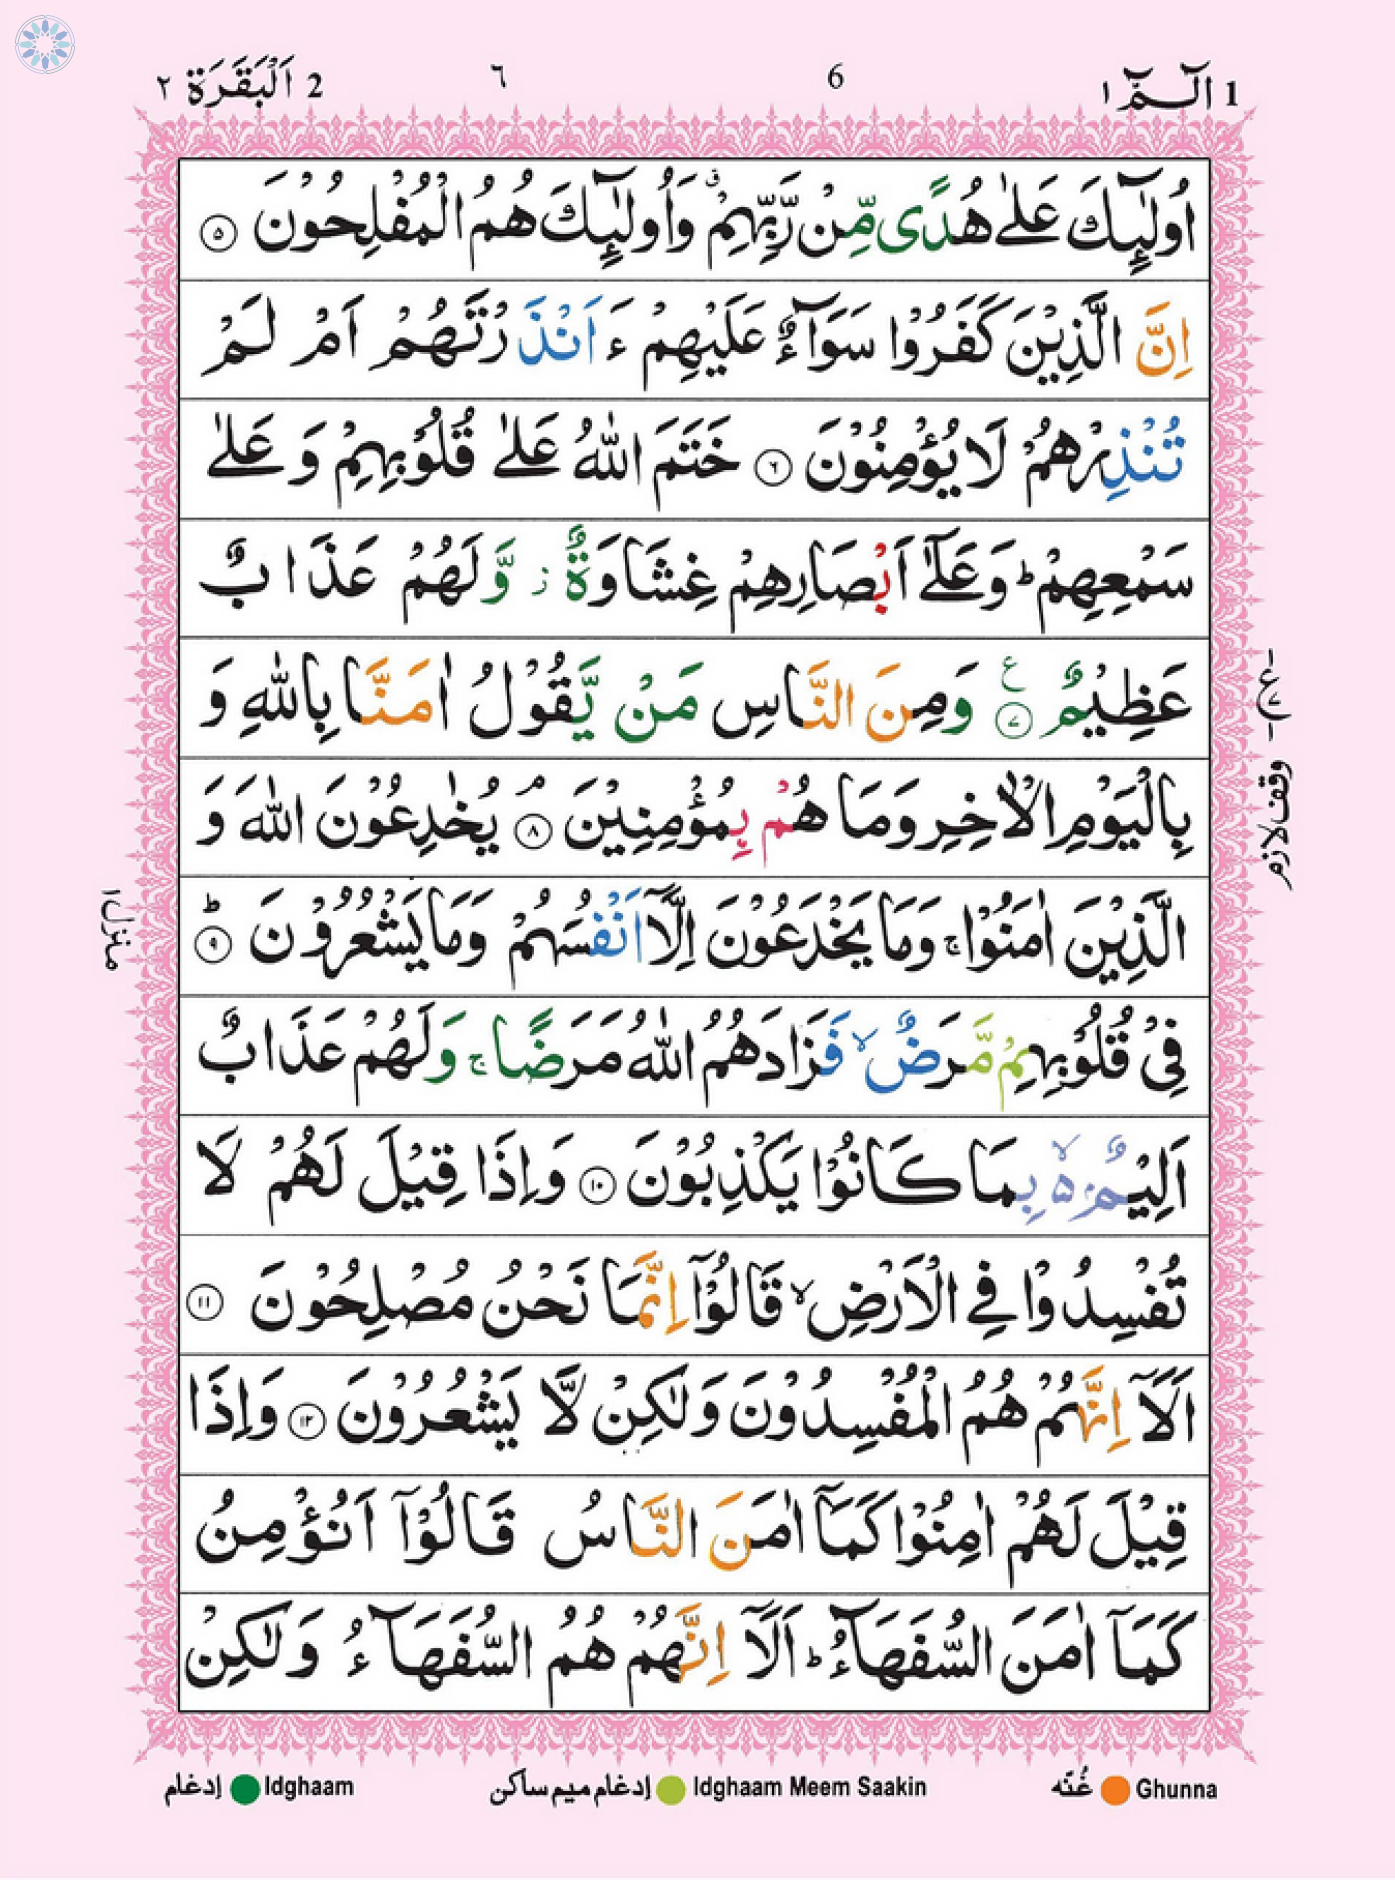 1 الٓـمّٓ ١
6
٦
2 اَلْبَقَرَة ٢
اُولٰٓئِكَ عَلٰى هُدًى مِّنْ رَّبِّهِمْ ۗ وَاُولٰٓئِكَ هُمُ الْمُفْلِحُوْنَ ۝٥
اِنَّ الَّذِيْنَ كَفَرُوْا سَوَآءٌ عَلَيْهِمْ ءَاَنْذَرْتَهُمْ اَمْ لَمْ
تُنْذِرْهُمْ لَا يُؤْمِنُوْنَ ۝٦ خَتَمَ اللّٰهُ عَلٰى قُلُوْبِهِمْ وَ عَلٰى
سَمْعِهِمْ ؕ وَ عَلٰٓى اَبْصَارِهِمْ غِشَاوَةٌ ز وَّلَهُمْ عَذَابٌ
عَظِيْمٌ ۝٧ ع وَمِنَ النَّاسِ مَنْ يَّقُوْلُ اٰمَنَّا بِاللّٰهِ وَ
بِالْيَوْمِ الْاٰخِرِ وَمَا هُمْ بِمُؤْمِنِيْنَ ۘ ۝٨ يُخٰدِعُوْنَ اللّٰهَ وَ
الَّذِيْنَ اٰمَنُوْا ۚ وَمَا يَخْدَعُوْنَ اِلَّاۤ اَنْفُسَهُمْ وَمَا يَشْعُرُوْنَ ؕ ۝٩
فِيْ قُلُوْبِهِمْ مَّرَضٌ ۙ فَزَادَهُمُ اللّٰهُ مَرَضًا ۚ وَلَهُمْ عَذَابٌ
اَلِيْمٌۢ ۙ۵ بِمَا كَانُوْا يَكْذِبُوْنَ ۝١٠ وَاِذَا قِيْلَ لَهُمْ لَا
تُفْسِدُوْا فِي الْاَرْضِ ۙ قَالُوْۤا اِنَّمَا نَحْنُ مُصْلِحُوْنَ ۝١١
اَلَاۤ اِنَّهُمْ هُمُ الْمُفْسِدُوْنَ وَلٰكِنْ لَّا يَشْعُرُوْنَ ۝١٢ وَاِذَا
قِيْلَ لَهُمْ اٰمِنُوْا كَمَاۤ اٰمَنَ النَّاسُ قَالُوْۤا اَنُؤْمِنُ
كَمَاۤ اٰمَنَ السُّفَهَآءُ ؕ اَلَاۤ اِنَّهُمْ هُمُ السُّفَهَآءُ وَلٰكِنْ
وقف لازم
منزل ١
Ghunna غُنّه
Idghaam Meem Saakin إدغام ميم ساكن
Idghaam إدغام